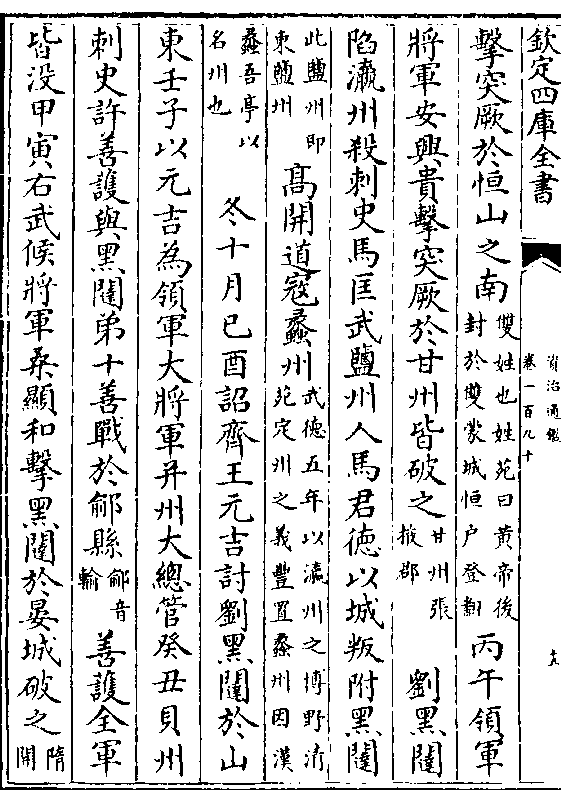 欽定四庫全書
資治通鑑
卷一百九十
擊突厥於恒山之南
雙姓也姓苑曰黄帝後
封於雙蒙城恒户登翻
丙午領軍
將軍安興貴擊突厥於甘州皆破之
甘州張
掖郡
劉黑闥
陷瀛州殺刺史馬匡武鹽州人馬君德以城叛附黑闥
此鹽州即
東鹽州
高開道寇蠡州
武德五年以瀛州之博野清
苑定州之義豐置蠡州因漢
蠡吾亭以
名州也
冬十月己酉詔齊王元吉討劉黑闥於山
東壬子以元吉為領軍大將軍并州大總管癸丑貝州
刺史許善護與黑闥弟十善戰於鄃縣
鄃音
輸
善護全軍
皆没甲寅右武候將軍桑顯和擊黑闥於晏城破之
隋
開